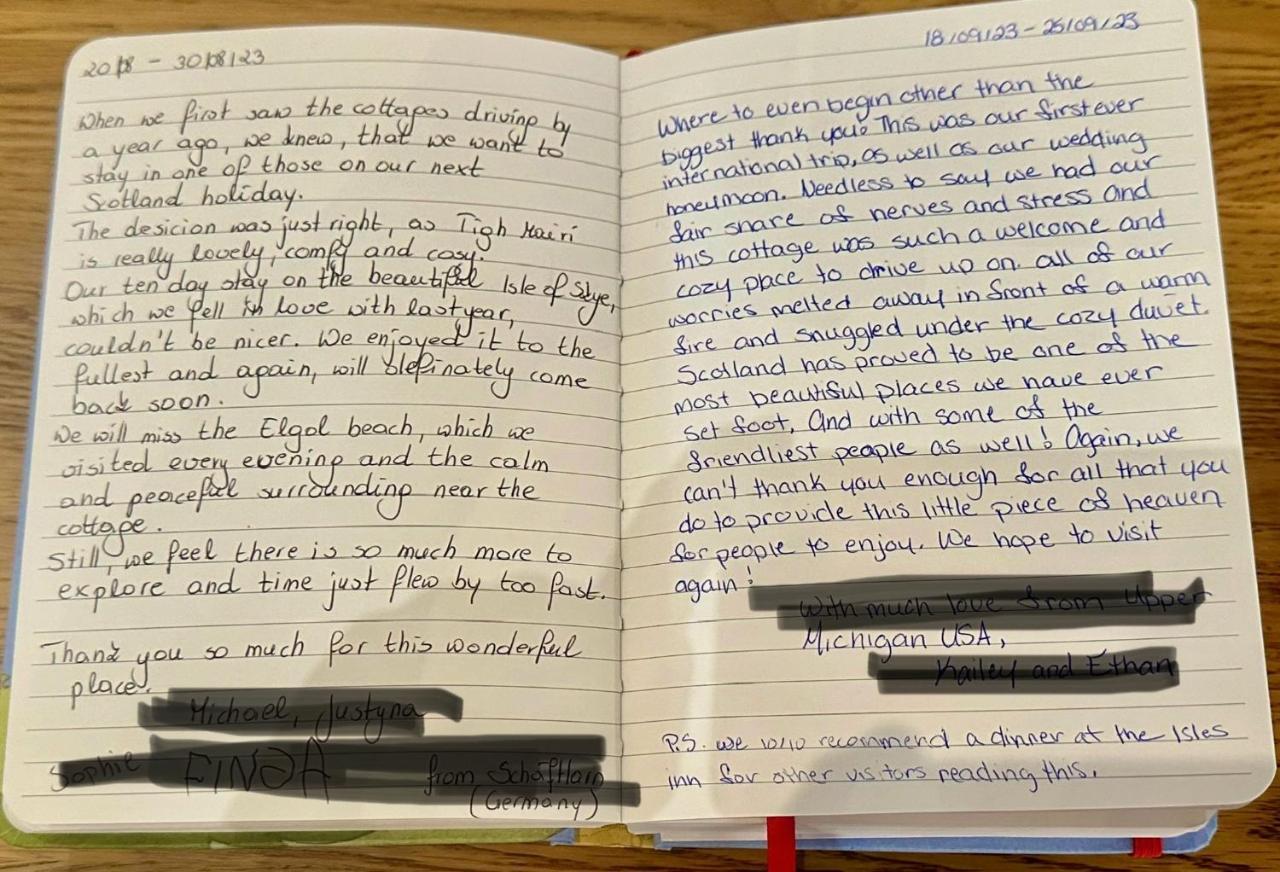 20/8 - 30/08/23
When we first saw the cottages driving by
a year ago, we knew, that we want to
stay in one of those on our next
Scotland holiday.
The desicion was just right, as Tigh Mairi
is really lovely, comfy and cosy.
Our ten day stay on the beautiful Isle of Skye,
which we fell in love with last year,
couldn't be nicer. We enjoyed it to the
fullest and again, will definately come
back soon.
We will miss the Elgol beach, which we
visited every evening and the calm
and peaceful surrounding near the
cottage.
Still, we feel there is so much more to
explore and time just flew by too fast.
Thank you so much for this wonderful
place.
Michael, Justyna
Sophie from
(Germany)
18/09/23 - 25/09/23
Where to even begin other than the
biggest thank you! This was our first ever
international trip, as well as our wedding
honeymoon. Needless to say we had our
fair share of nerves and stress and
this cottage was such a welcome and
cozy place to drive up on. all of our
worries melted away in front of a warm
fire and snuggled under the cozy duvet.
Scotland has proved to be one of the
most beautiful places we have ever
set foot, and with some of the
friendliest people as well! Again, we
can't thank you enough for all that you
do to provide this little piece of heaven
for people to enjoy. We hope to visit
again!
With much love from Upper
Michigan USA,
Kailey and Ethan
P.S. we 10/10 recommend a dinner at the Isles
inn for other visitors reading this.